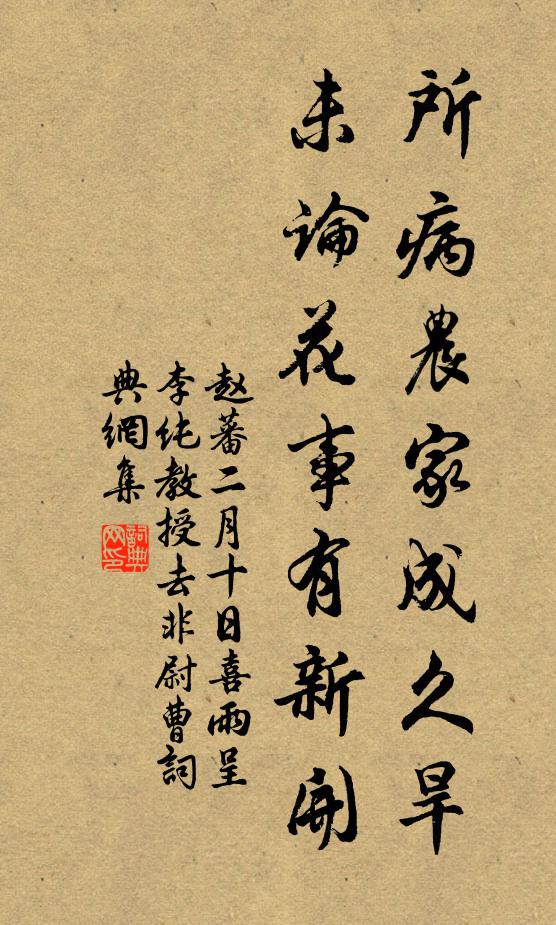 所病農家成久旱
未論花事有新開
赵蕃二月十日喜雨呈
李纯教授去非尉曹詞
典網集
詞典網印